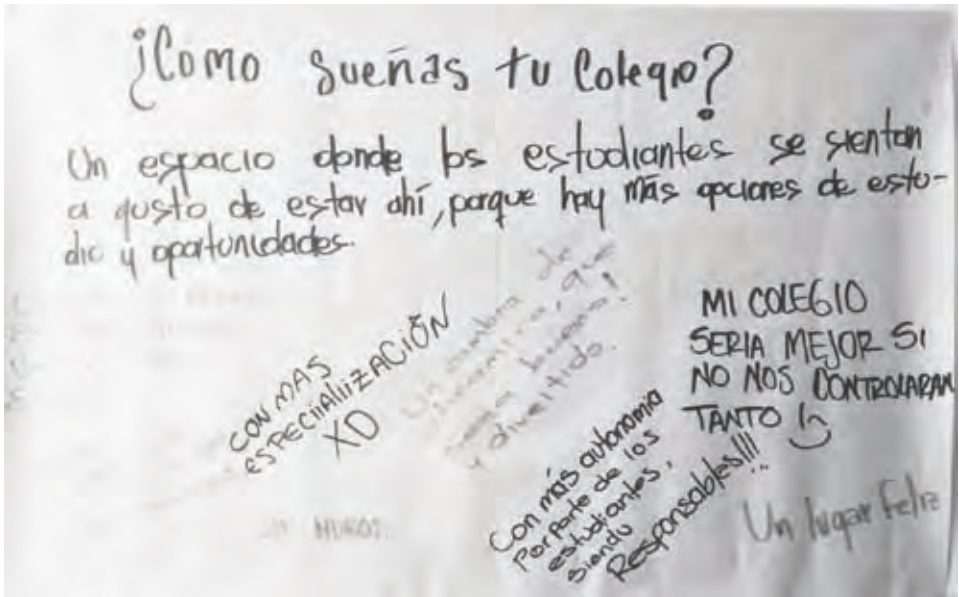 ¿Como sueñas tu Colegio?
Un espacio donde los estudiantes se sientan
a gusto de estar ahí, porque hay más opciones de estu-
dio y oportunidades.
CON MAS
ESPECIIALIZACIÓN
XD
de
que
y divertido.
MI COLEGIO
SERIA MEJOR SI
NO NOS CONTROLARAN
TANTO
Con más autonomia
Por Parte de los
estudiantes,
siendo
Responsables!!!
Un lugar Feliz
MUROS.